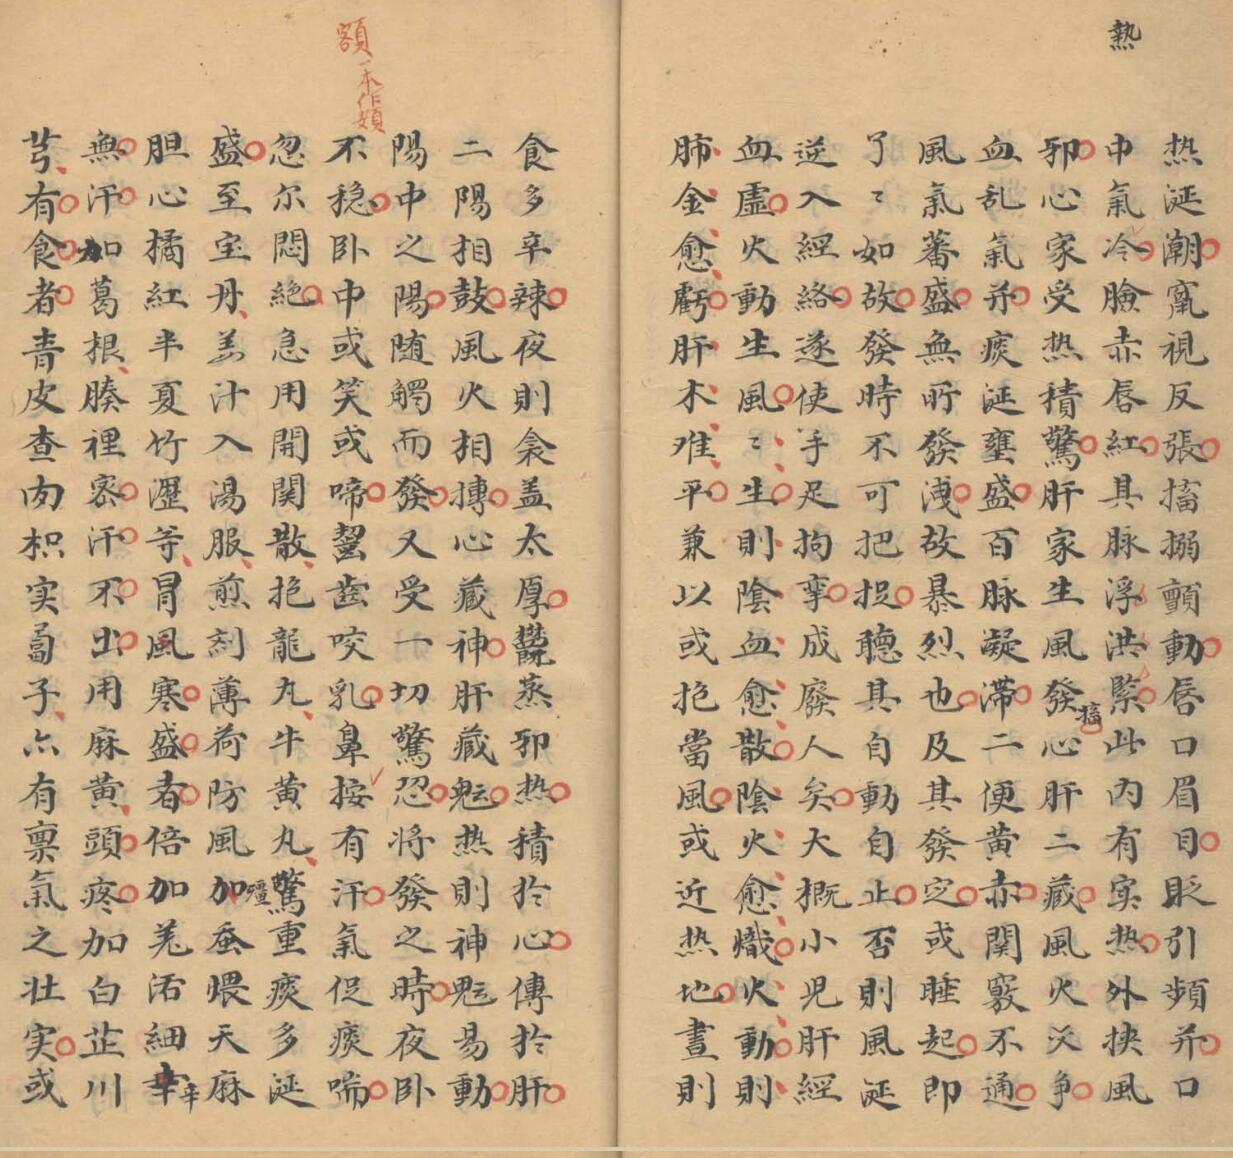 熱
热涎潮竄視反張搐搦顫動唇口眉目眨引頻并口
中氣冷臉赤唇紅具脉浮洪緊此内有实热外挟風
邪心家受热積驚肝家生風發搐心肝二藏風火交争
血乱氣并痰涎壅盛百脉凝滯二便黄赤関竅不通
風氣蕃盛無所發洩故暴烈也及其發定或睡起即
了〻如故發時不可把捉聽其自動自止否則風涎
逆入經絡遂使手足拘攣成廢人矣大概小児肝經
血虚火動生風〻生則陰血愈散陰火愈熾火動則
肺金愈虧肝木难平兼以或抱當風或近热地晝則
食多辛辣夜則衾盖太厚欝蒸邪热積於心傳於肝
二陽相鼓風火相搏心藏神肝藏魂热則神魂易動
陽中之陽随觸而發又受一切驚忍將發之時夜卧
額一本作類
不穏卧中或笑或啼齧齒咬乳鼻按有汗氣促痰喘
忽尔悶絶急用開関散抱龍丸牛黄丸驚重痰多涎
盛至宝丹姜汁入湯服煎刻薄荷防風加殭蚕煨天麻
胆心橘紅半夏竹瀝等冒風寒盛者倍加羌活細辛辛
無汗加葛根腠裡密汗不出用麻黄頭疼加白芷川
芎有食者青皮查肉枳实蔔子亦有禀氣之壮实或